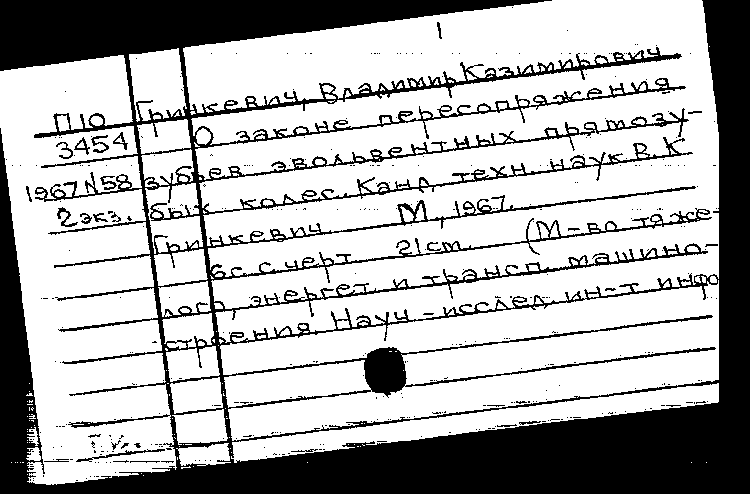 1
П10 Гринкевич, Владимир Казимирович
3454 О законе пересопряжения
1967 N58 зубьев эвольвентных прямозу-
2 экз. бых колес. Канд. техн. наук В. К
Гринкевич М, 1967.
6с. с черт 21 cm. (М-во тяже-
лого, энергет и трансп. машино-
строения. Науч-исслед. ин-т инфо